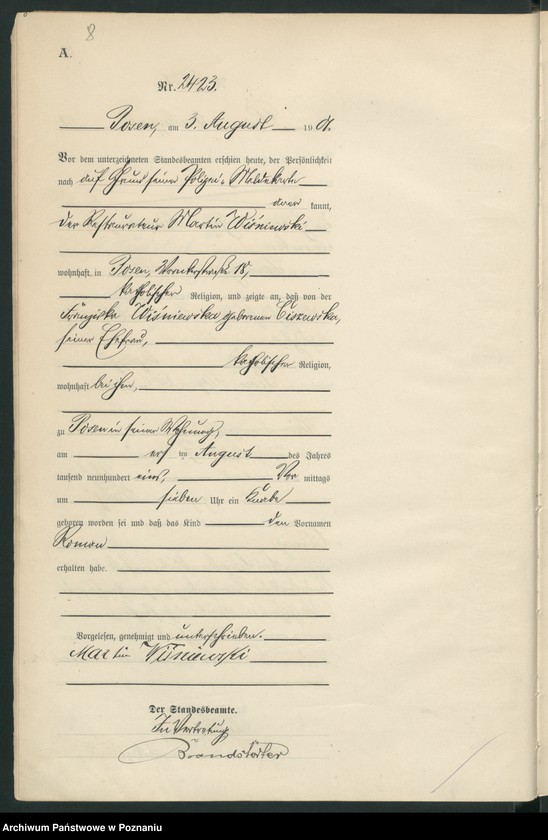 8
A.
Nr. 2423.
Posen, am 3. August 1901.
Vor dem unterzeichneten Standesbeamten erschien heute, der Persönlichkeit
nach auf Grund seiner Polizei-Meldekarte
kannt,
der Restaurateur Martin Wiśniewski
wohnhaft in Posen, 18,
katholischer Religion, und zeigte an, daß von der
Franziska Wiśniewska geborenen Ciszewska,
seiner Ehefrau,
katholischer Religion,
wohnhaft bei ihm,
zu Posen in seiner Wohnung,
am ersten August des Jahres
tausend neunhundert eins, Vor mittags
um sieben Uhr ein Knabe
geboren worden sei und daß das Kind den Vornamen
Roman
erhalten habe.
Vorgelesen, genehmigt und unterschrieben.
Martin Wiśniewski
Der Standesbeamte.
In Vertretung
Brandstäter
Archiwum Państwowe w Poznaniu